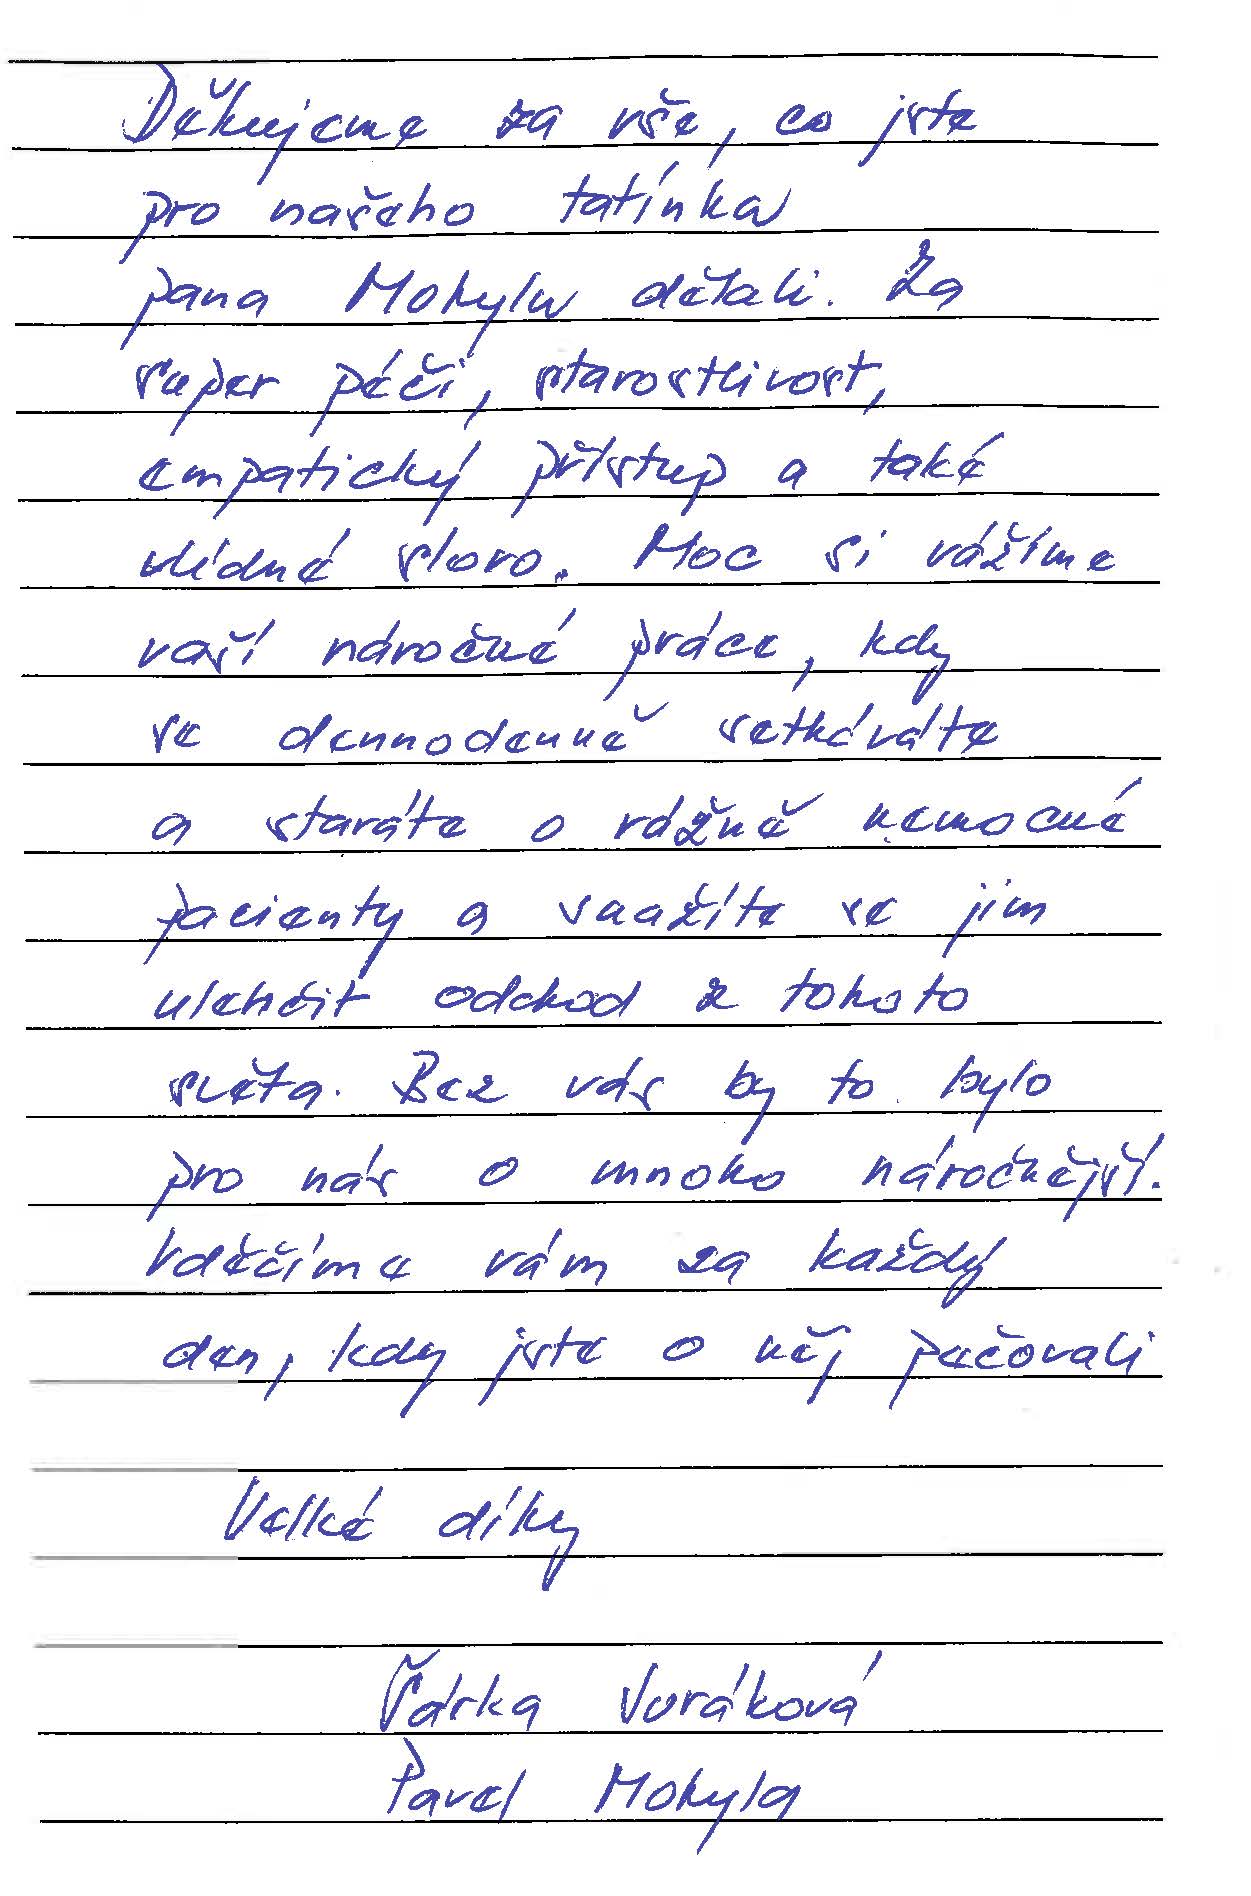 Děkujeme za vše, co jste
pro našeho tatínka
pana Mohylu dělali. Za
super péči, starostlivost,
empatický přístup a také
vlídné slovo. Moc si vážíme
vaší náročné práce, kdy
se dennodenně setkáváte
a staráte o vážně nemocné
pacienty a snažíte se jim
ulehčit odchod z tohoto
světa. Bez vás by to bylo
pro nás o mnoho náročnější.
Vděčíme vám za každý
den, kdy jste o něj pečovali
Velké díky
Šárka
Pavel Mohyla